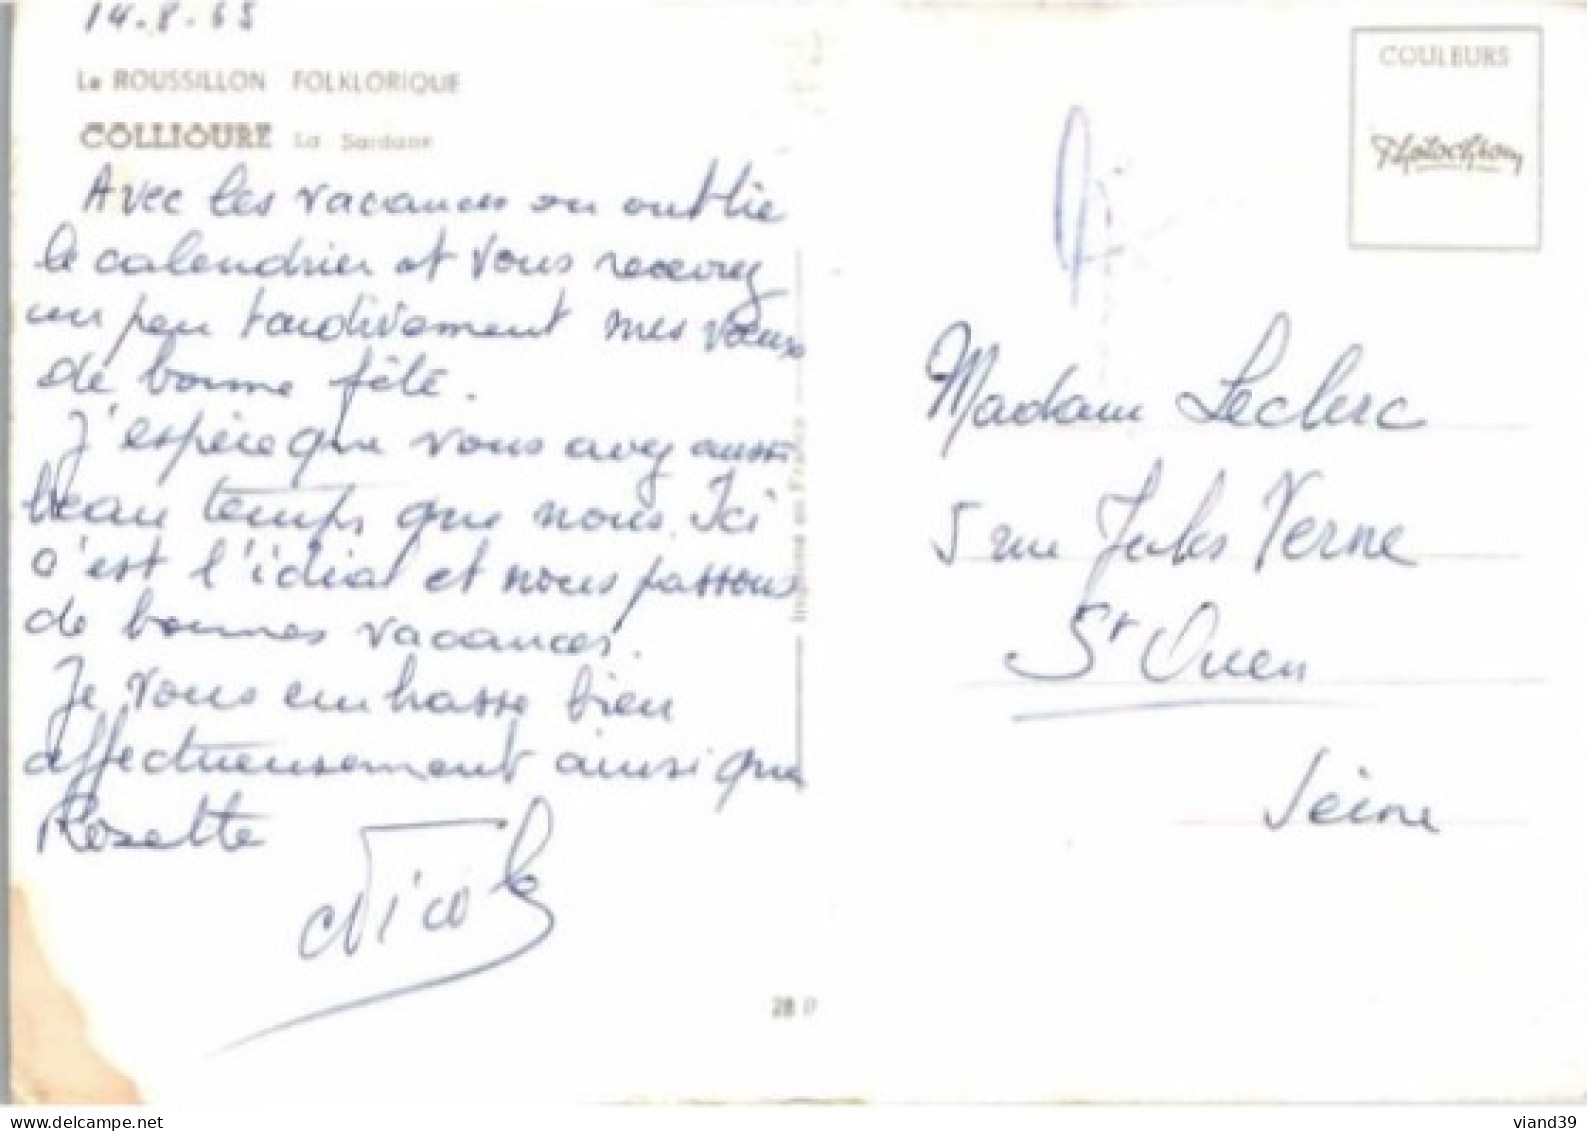 14.8.65
Le ROUSSILLON FOLKLORIQUE
COLLIOURE La Sardane
Avec les vacances on oublie
le calendrier et vous recevrez
un peu tardivement mes vœux
de bonne fête.
J'espère que vous avez aussi
beau temps que nous. Ici
c'est l'idéal et nous passons
de bonnes vacances.
Je vous embrasse bien
affectueusement ainsi que
Rosette
Nicole
Imprimé en France
28 P
COULEURS
Photochrom
Madame Leclerc
5 rue Jules Verne
St Ouen
Seine
viand39